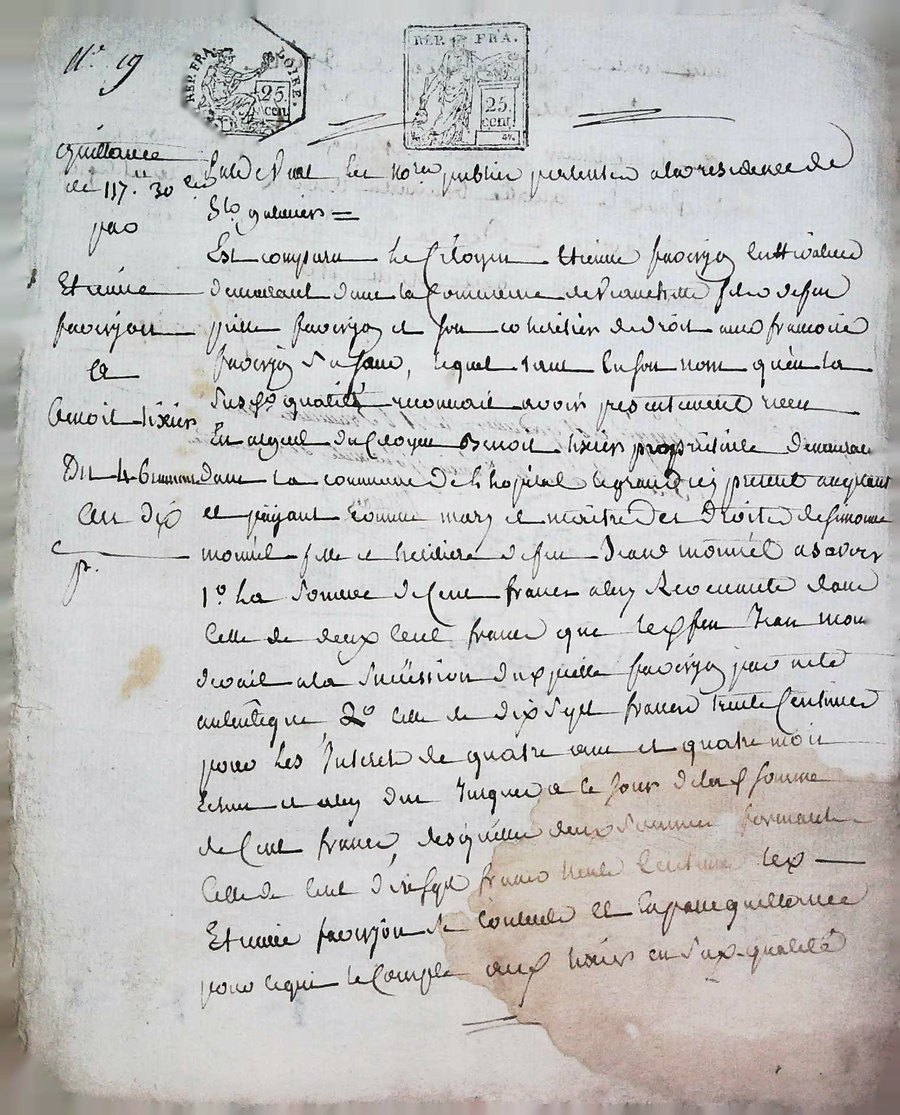 N° 19
REP. FRA. LOIRE.
25. cent.
REP. FRA.
25. cent.
quittance
de 117. 30
par
Etienne
faverjon
a
benoit tixier
Du 4 brumaire
an dix
pr.
Pardevant Les No.res publics
residence de
St. galmier =
Est comparu Le Citoyen Etienne faverjon Cultivateur
demeurant dans la Commune de fils de feu
faverjon et Son coheritier de droit avec francoise
faverjon Sa Soeur, lequel tant En Son nom qu'en la
Susd. qualité reconnait avoir presentement recu
En argent du Citoyen Benoit tixier proprietaire demeurant
dans La commune de L'hopital legrand ici present acceptant
et payant comme mary et maitre des Droits de Simonne
fille et heritiere de feu Jean a Savoir
1° La Somme de Cent francs dans
Celle de deux Cent francs que led. feu Jean
devait a la Succession dud. faverjon par acte
autentique, 2° Celle de dix Sept francs trente Centimes
pour Les Interet de quatre ans et quatre mois
Echus Jusques a ce Jour de lad. Somme
de Cent francs, desquelles deux Sommes formant
Celle de Cent dix Sept francs trente Centimes led.
Etienne faverjon Se Contente et En passe quittance
pour ce qui Le Compete aud. tixier en Sud. qualité